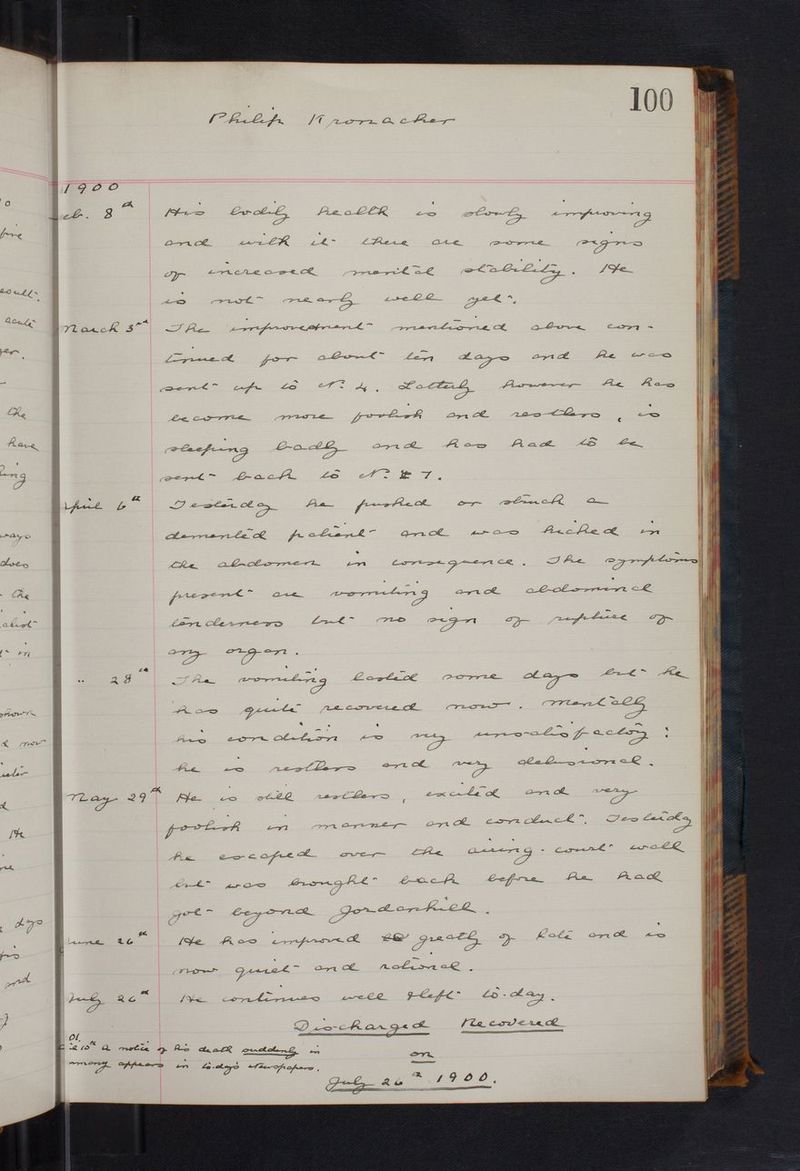 100
Philip Kronacher
1900
Feb. 8th His bodily health is slowly improving
and with it there are some signs
of increased mental stability. He
is not nearly well yet.
March 5th The improvement mentioned above con-
tinued for about ten days and he was
sent up to No. 4. Latterly however he has
become more foolish and restless, is
sleeping badly and has had to be
sent back to No. 7.
April 6th Yesterday he pushed or struck a
demented patient and was kicked in
the abdomen in consequence. The symptoms
present are vomiting and abdominal
tenderness but no sign of rupture of
any organ.
" 28th The vomiting lasted some days but he
has quite recovered now. Mentally
his condition is very unsatisfactory:
he is restless and very delusional.
May 29th He is still restless, excited and very
foolish in manner and conduct. Yesterday
he escaped over the airing-court wall
but was brought back before he had
got beyond Jordanhill.
June 26th He has improved greatly of late and is
now quiet and rational.
July 26th He continues well & left to-day.
Discharged Recovered
on
July 26th 1900.
01.
10th A notice of his death suddenly in
appears in to-day's Newspapers.